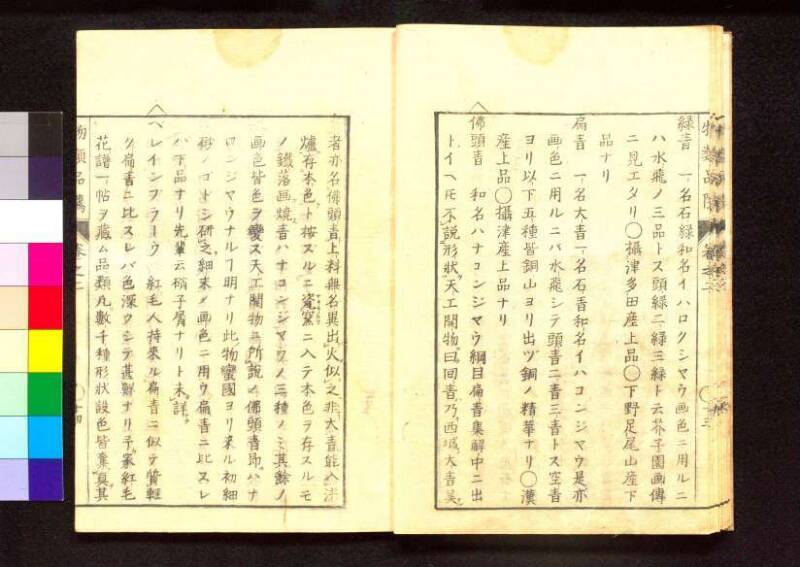 緑青 一名石緑和名イハロクシヤウ画色ニ用ルニ
ハ水飛ノ三品トス頭緑二緑三緑ト云芥子園画傳
ニ見エタリ〇攝津多田産上品〇下野足尾山産下
品ナリ
扁青 一名大青一名石青和名イハコンジヤウ是亦
画色ニ用ルニハ水飛シテ頭青二青三青トス空青
ヨリ以下五種皆銅山ヨリ出ヅ銅ノ精華ナリ〇漢
産上品〇攝津産上品ナリ
佛頭青 和名ハナコンジヤウ綱目扁青集解中ニ出
トイヘ𪜈不説形状天工開物曰回青乃西域大青美
者亦名佛頭青上料無名異出火似之非大青能入洪
爐存本色ト按スルニ窰窯ニ入テ本色ヲ存スルモ
ノ鐵落画焼青ハナコンジヤウノ三種ノミ其餘ノ
画色皆色ヲ変ス天工開物ニ所説ノ佛頭青即ハナ
コンジヤウナルヿ明ナリ此物蛮國ヨリ来ル初細
砂ノゴトシ研之細末メ画色ニ用ウ扁青ニ比スレ
ハ下品ナリ先輩云硝子屑ナリト未詳
ヘレインブラーウ 紅毛人持来ル扁青ニ似テ質軽
ク扁青ニ比スレバ色深クシテ甚鮮ナリ予家紅毛
花譜一帖ヲ藏ム品類凡數千種形状設色皆真其
物類品隲 巻之二 〇十四